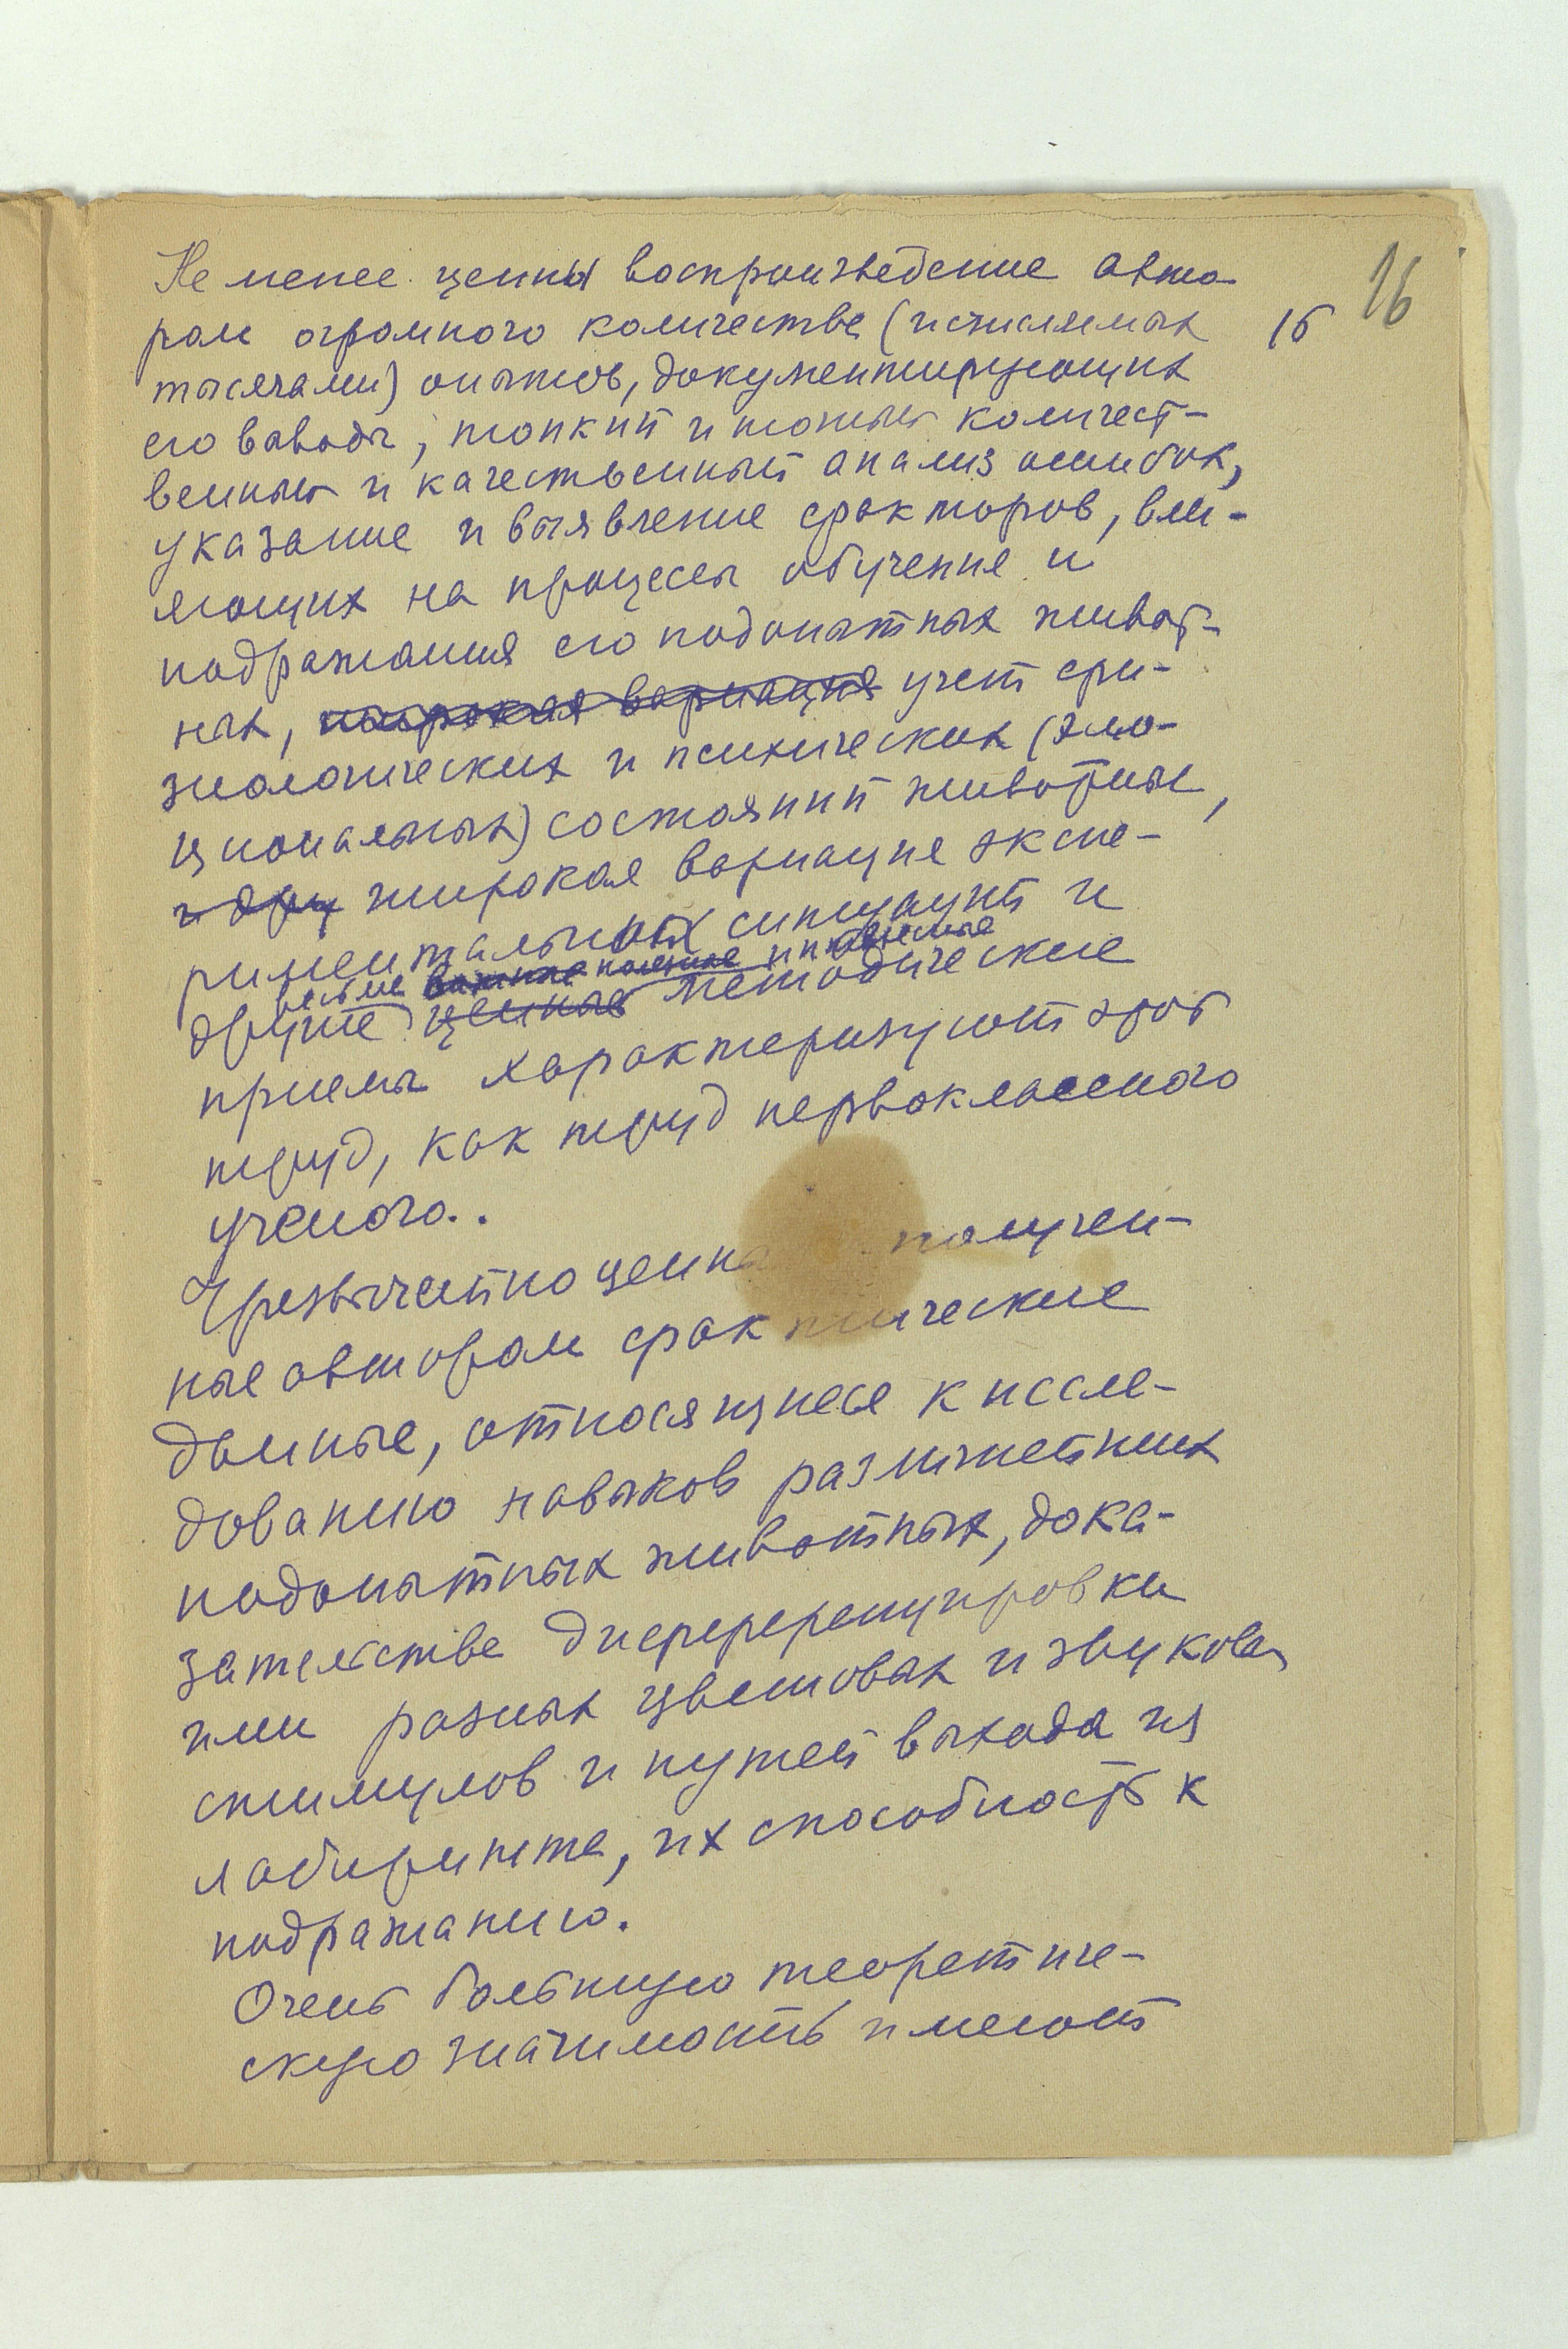 Не менее ценны воспроизведение авто-
ром огромного количества (исчисляемых
16
15
тысячами) опытов, документирующих
его выводы, тонкий и точный количест-
венный и качественный анализ ошибок,
указание и выявление факторов, вли-
яющих на процессы обучения и
подражания его подопытных живот-
ных, широкая вариация учет фи-
зиологических и психических (эмо-
циональных) состояний животных,
и друг широкая вариация экспе-
риментальных ситуаций и
весьме важные полезные и
другие ценные методические
приемы характеризуют этот
труд, как труд первоклассного
ученого..
Чрезвычайно ценны получен-
ные автором фактические
данные, относящиеся к иссле-
дованию навыков различнейших
подопытных животных, дока-
зательства дифференцировки
ими разных цветовых и звуковых
стимулов и путей выхода из
лабиринта, их способность к
подражанию.
Очень большую теоретиче-
скую значимость имеют